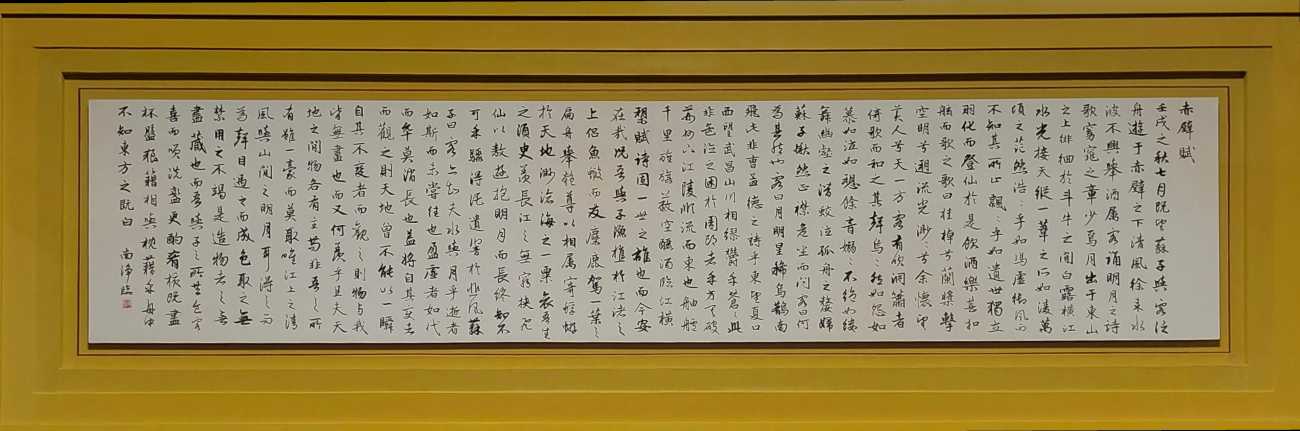 赤壁賦
壬戌之秋七月既望蘇子與客泛
舟遊于赤壁之下清風徐来水
波不興舉酒属客誦明月之詩
歌窈窕之章少焉月出于東山
之上徘徊於斗牛之間白露横江
水光接天縱一葦之所如淩萬
頃之茫然浩〻乎如馮虚御風而
不知其所止飄〻乎如遺世獨立
羽化而登仙於是飲酒樂甚扣
舷而歌之歌曰桂棹兮蘭槳擊
空明兮遡流光渺〻兮余懷望
美人兮天一方客有吹洞簫者
倚歌而和之其聲烏〻然如怨如
慕如泣如訴餘音嫋〻不絶如縷
舞幽壑之潜蛟泣孤舟之嫠婦
蘇子愀然正襟危坐而問客曰何
為其然也客曰月明星稀烏鵲南
飛此非曹孟德之詩乎東望夏口
西望武昌山川相繆鬱乎蒼〻此
非孟德之困於周郎者乎方其破
荊州下江陵順流而東也舳艫
千里旌旗蔽空釃酒臨江横
槊賦詩固一世之雄也而今安
在哉況吾與子漁樵於江渚之
上侶魚蝦而友麋鹿駕一葉之
扁舟舉匏尊以相属寄蜉蝣
於天地渺滄海之一粟哀吾生
之須臾羨長江之無窮挟飛
仙以敖遊抱明月而長終知不
可乎驟得託遺響於悲風蘇
子曰客亦知夫水與月乎逝者
如斯而未嘗往也盈虚者如代
而卒莫消長也蓋將自其變者
而觀之則天地曾不能以一瞬
自其不變者而觀之則物与我
皆無盡也而又何羨乎且夫天
地之間物各有主苟非吾之所
有雖一毫而莫取唯江上之清
風與山間之明月耳得之而
為聲目遇之而成色取之無
禁用之不竭是造物者之無
盡藏也而吾與子之所共食客
喜而咲洗盞更酌肴核既盡
杯盤狼藉相與枕藉乎舟中
不知東方之既白 南浄臨